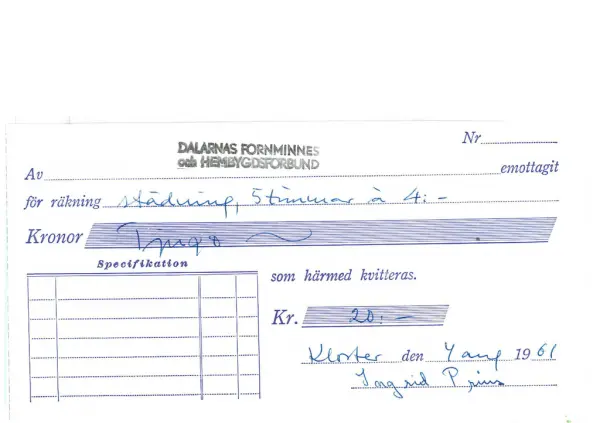 Nr
DALARNAS FORNMINNES
och HEMBYGDSFÖRBUND
Av emottagit
för räkning städning, 5 timmar à 4:-
Kronor Tjugo
Specifikation
som härmed kvitteras.
Kr. 20:-
Kloster den 4 aug 1961
Ingrid